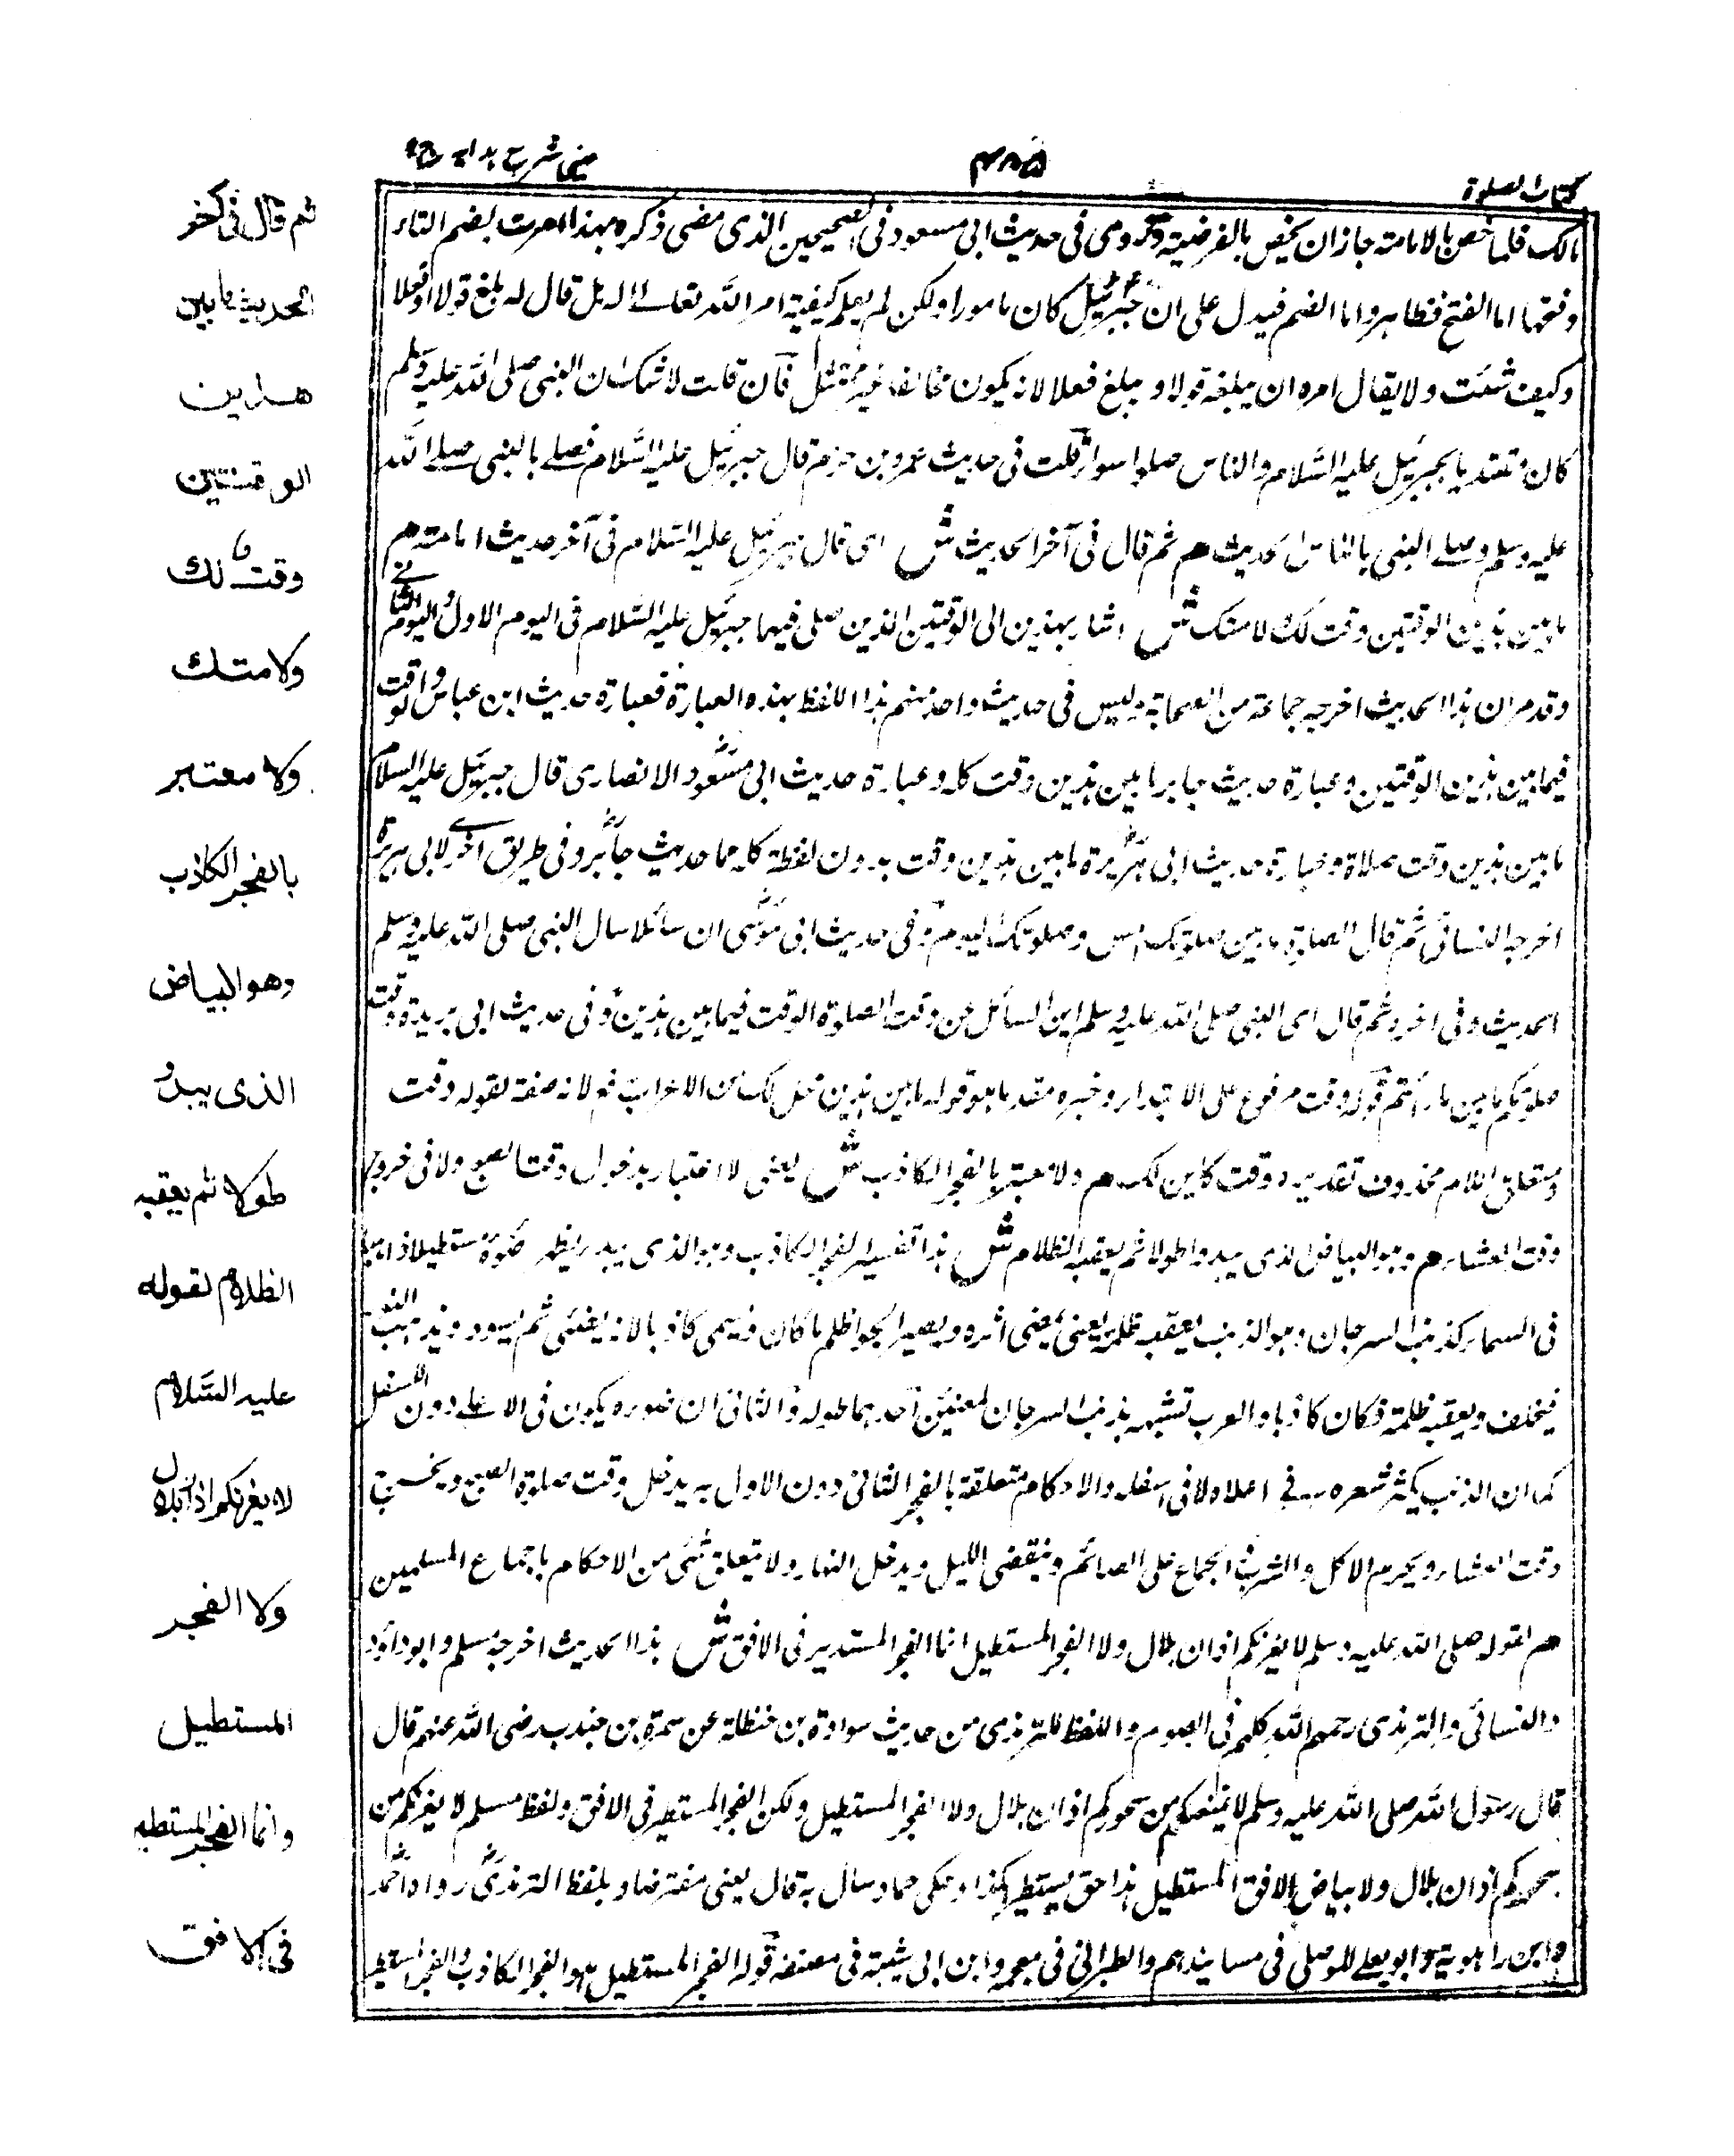 كتاب الصلوة
٤٨٥
عينى شرح هدايه ج١
مالك فلما خص بالامامة جاز ان يخص بالفرضية وقد روى فى حديث ابى مسعود فى الصحيحين الذى مضى ذكره بهذا امرت بضم التاء
وفتحها اما الفتح فظاهر واما الضم فيدل على ان جبرئيل كان مامورا ولكن لم يعلم كيفية امر الله تعالى له بل قال له بلغ قولا او فعلا
وكيف شئت ولا يقال امره ان يبلغه قولا وبلغ فعلا لانه يكون مخالفا غير ممتثل فان قلت لا شك ان النبى صلى الله عليه وسلم
كان مقتديا بجبرئيل عليه السلام والناس صلوا سواء قلت فى حديث عمرو بن حزم قال جبرئيل عليه السلام فصلى بالنبى صلى الله
عليه وسلم وصلى النبى بالناس الحديث هم ثم قال فى آخر الحديث ش اى قال جبرئيل عليه السلام فى آخر حديث امامته هم
ما بين هذين الوقتين وقت لك ولامتك ش اشار بهذين الى الوقتين الذين صلى فيهما جبرئيل عليه السلام فى اليوم الاول واليوم الثانى
وقد مر ان هذا الحديث اخرجه جماعة من الصحابة وليس فى حديث واحد منهم هذا اللفظ بهذه العبارة فعبارة حديث ابن عباس والوقت
فيما بين هذين الوقتين وعبارة حديث جابر ما بين هذين وقت كله وعبارة حديث ابى مسعود الانصارى قال جبرئيل عليه السلام
ما بين هذين وقت صلاة وعبارة حديث ابى هريرة ما بين هذين وقت بدون لفظة كله مما حديث جابر وفى طريق اخرى لابى هريرة
اخرجه النسائى ثم قال الصلوة ما بين صلوتك امس وصلوتك اليوم وفى حديث ابى موسى ان سائلا سال النبى صلى الله عليه وسلم
الحديث وفى اخره ثم قال اى النبى صلى الله عليه وسلم اين السائل عن وقت الصلوة الوقت فيما بين هذين وفى حديث ابى بريدة وقت
صلوتكم ما بين ما رأيتم قوله وقت مرفوع على الابتداء وخبره مقدما هو قوله ما بين هذين محل لك من الاعراب رفع لانه صفة لقوله وقت
ومتعلق اللام محذوف تقديره وقت كاين لك هم ولا معتبر بالفجر الكاذب ش يعنى لا اعتبار بدخول وقت الصبح ولا فى خروج
وقت العشاء هم وهو البياض الذى يبدو طولا ثم يعقبه الظلام ش هذا تفسير الفجر الكاذب وهو الذى يبدو يظهر ضوءه مستطيلا ذاهبا
فى السماء كذنب السرحان وهو الذئب يعقبه ظلمة يعنى يمضى اثره ويصير الجو اظلم ما كان وسمى كاذبا لانه يضئ ثم يسود ويذهب النور
فيتخلف ويعقبه ظلمة فكان كاذبا والعرب تشبهه بذنب السرحان لمعنيين احدهما طوله والثانى ان ضوءه يكون فى الاعلى دون الاسفل
كما ان الذئب يكثر شعره فى اعلاه لا فى اسفله والاحكام متعلقة بالفجر الثانى دون الاول به يدخل وقت صلوة الصبح ويخرج
وقت العشاء ويحرم الاكل والشرب والجماع على الصائم وينقضى الليل ويدخل النهار ولا يتعلق شئ من الاحكام باجماع المسلمين
هم لقوله صلى الله عليه وسلم لا يغرنكم اذان بلال ولا الفجر المستطيل انما الفجر المستدير فى الافق ش هذا الحديث اخرجه مسلم وابو داؤد
والنسائى والترمذى رحمهم الله كلهم فى الصوم واللفظ للترمذى من حديث سوادة بن حنظلة عن سمرة بن جندب رضى الله عنهم قال
قال رسول الله صلى الله عليه وسلم لا يمنعكم من سحوركم اذان بلال ولا الفجر المستطيل ولكن الفجر المستطير فى الافق ولفظ مسلم لا يغرنكم من
سحوركم اذان بلال ولا بياض الافق المستطيل هذا حتى يستطير هكذا وحكى حماد سال به قال يعنى معترضا وبلفظ الترمذى رواه احمد
وابن راهويه وابو يعلى الموصلى فى مسانيدهم والطبرانى فى معجمه وابن ابى شيبة فى مصنفه قوله الفجر المستطيل هو الفجر الكاذب والفجر المستطير
ثم قال فى آخر
الحديث ما بين
هذين
الوقتين
وقت لك
ولامتك
ولا معتبر
بالفجر الكاذب
وهو البياض
الذى يبدو
طولا ثم يعقبه
الظلام لقوله
عليه السلام
لا يغرنكم اذان بلال
ولا الفجر
المستطيل
وانما الفجر المستطير
فى الافق